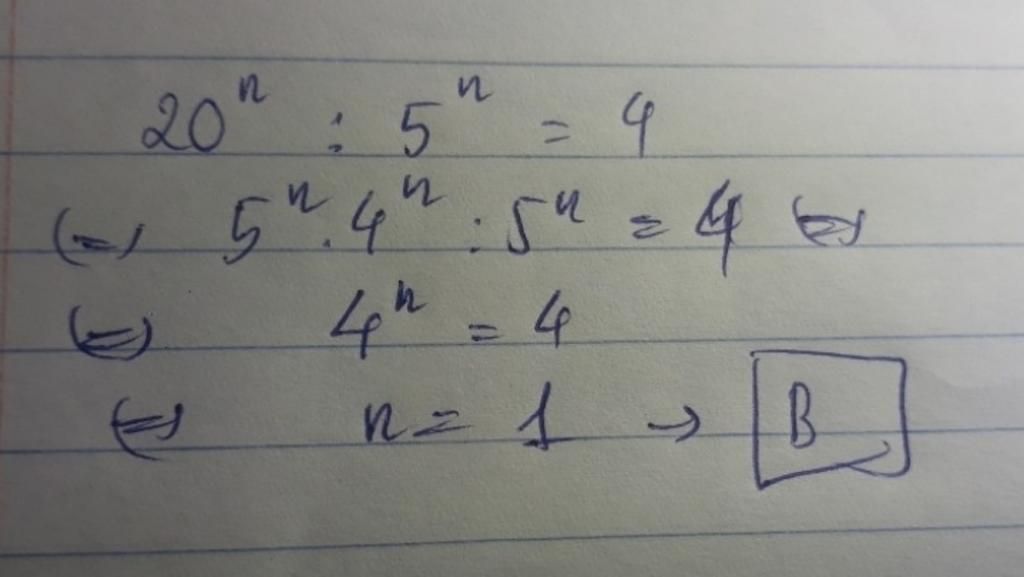 20ⁿ : 5ⁿ = 4
(=) 5ⁿ . 4ⁿ : 5ⁿ = 4 (=)
(=) 4ⁿ = 4
(=) n = 1 → B